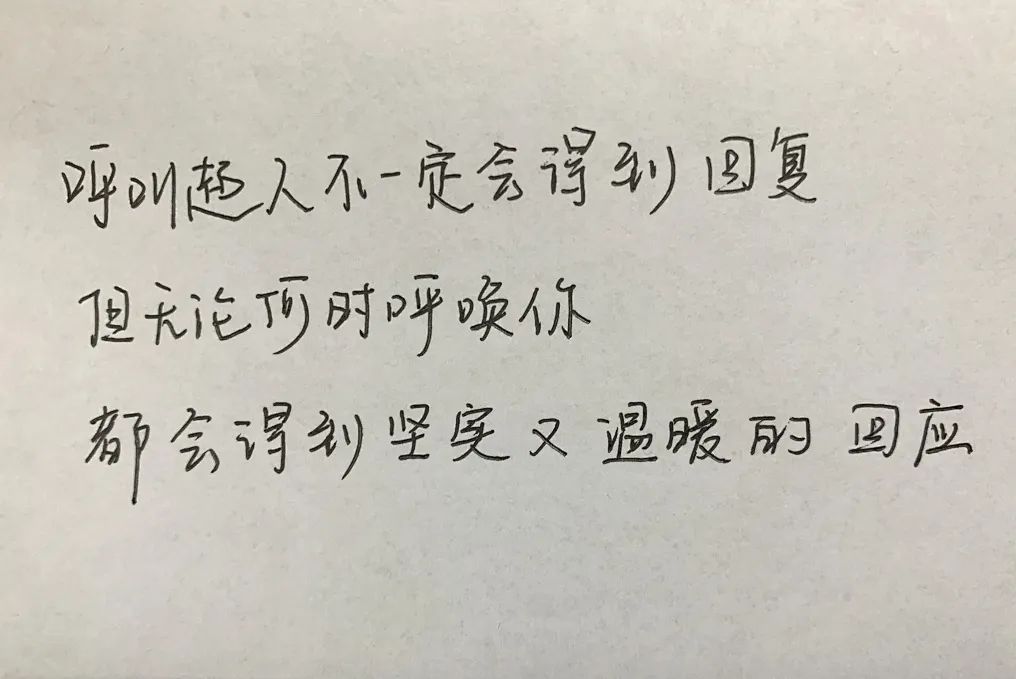 呼叫超人不一定会得到回复
但无论何时呼唤你
都会得到坚实又温暖的回应